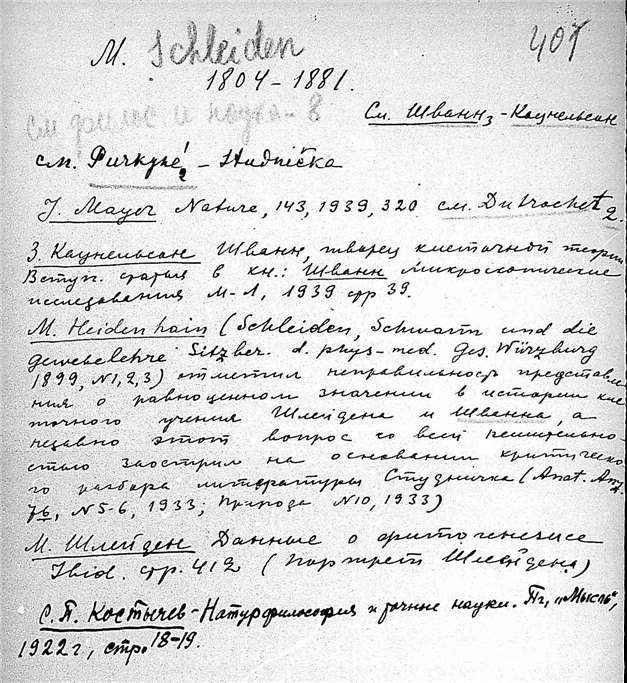 M. Schleiden 407
1804-1881.
см филос и наука - 8
См. Шванн₃ - Кацнельсон
см. Purkyně₂ - Studnička
J. Mayer Nature, 143, 1939, 320 см. Dutrochet₂
З. Кацнельсон Шванн, творец клеточной теории
Вступ. статья в кн.: Шванн Микроскопические
исследования М-Л, 1939 стр 39.
M. Heidenhain (Schleiden, Schwann und die
Gewebelehre Sitzber. d. phys-med. Ges. Würzburg
1899, N1,2,3) отметил неправильность представле
ния о равноценном значении в истории кле
точного учения Шлейдена и Шванна, а
недавно этот вопрос со всей решительно-
стью заострил на основании критическо-
го разбора литературы Студничка (Anat. Anz.
76, N5-6, 1933; Природа N10, 1933)
М. Шлейден Данные о фитогенезисе
Ibid. стр. 412 (портрет Шлейдена)
С. П. Костычев - Натурфилософия и точные науки. Пг, „Мысль",
1922г, стр. 18-19.